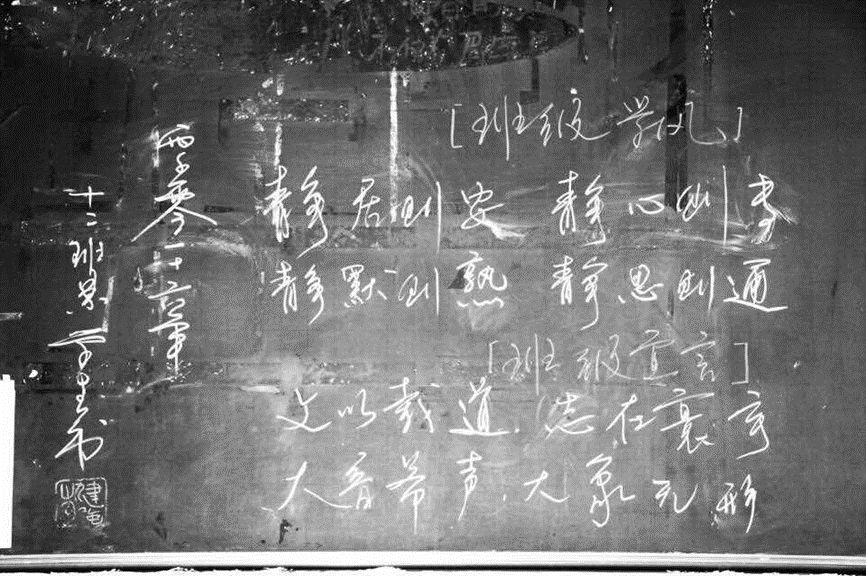 [班级学风]
静居则安 静心则专
静默则熟 静思则通
[班级宣言]
文以载道，志在寰宇
大音希声，大象无形
两千零一十六年
十二班
书